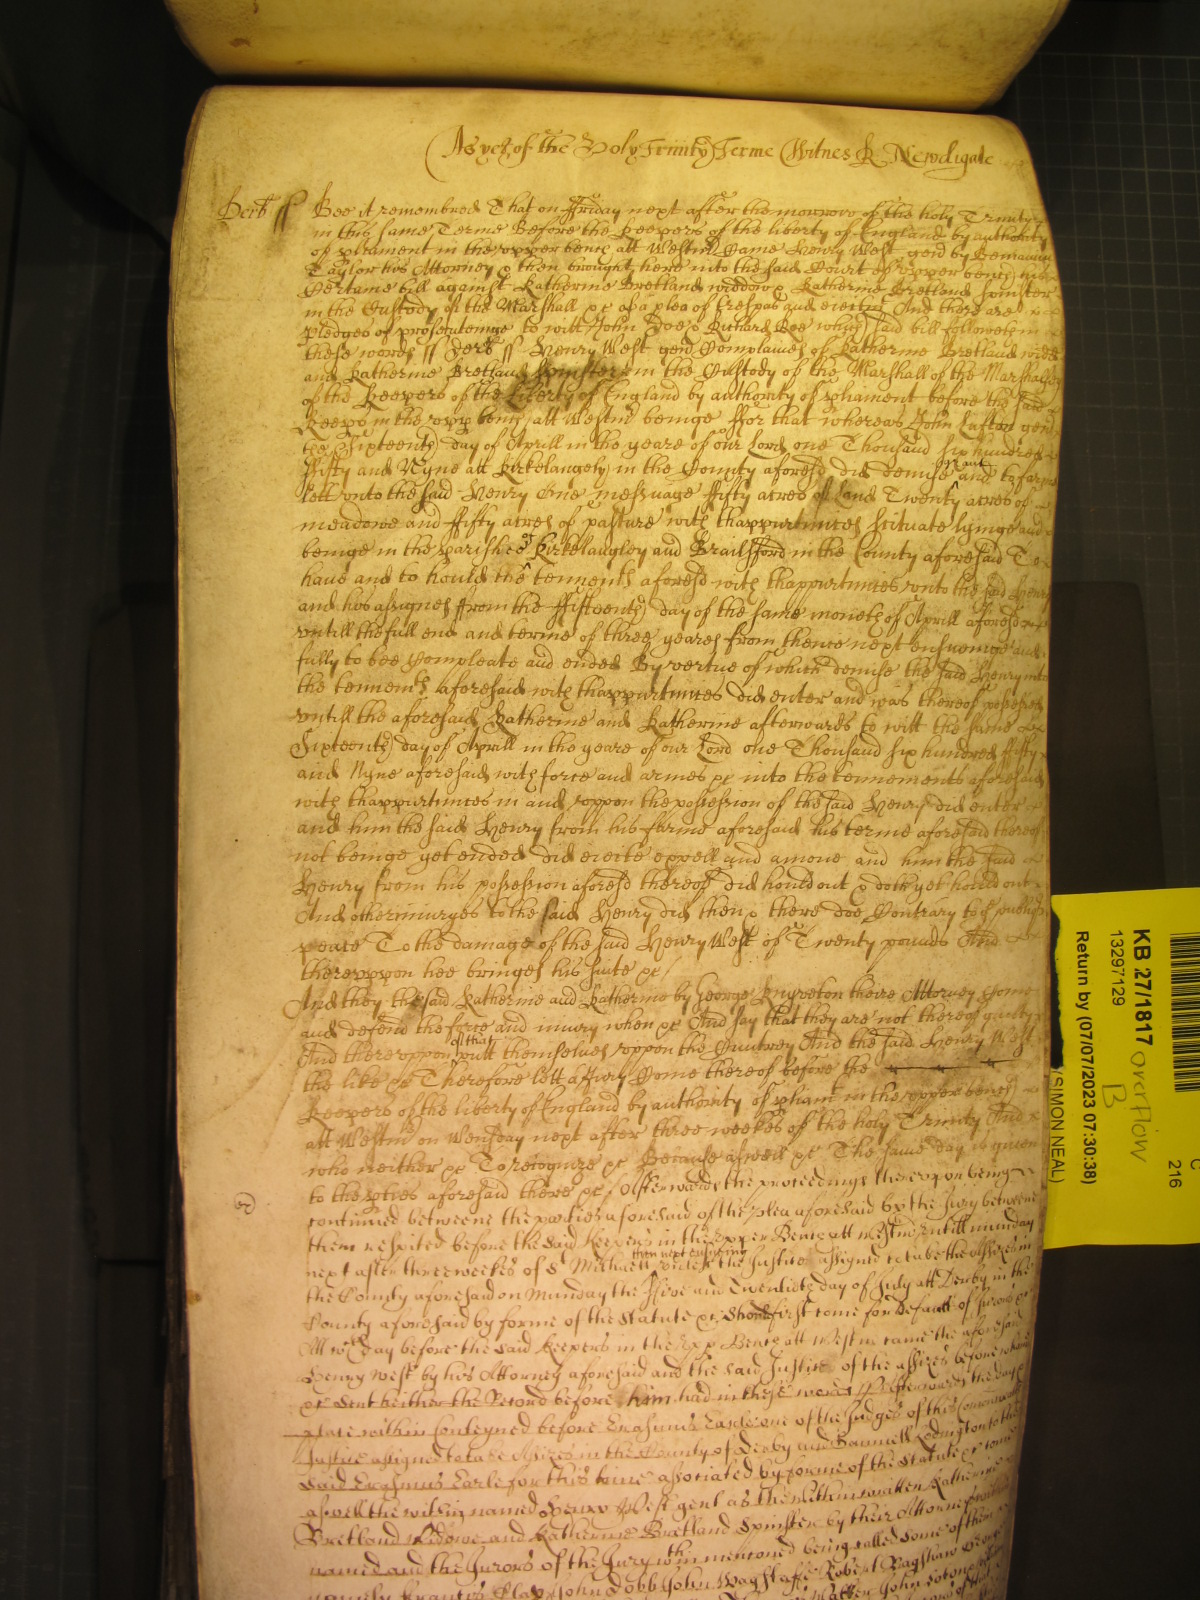 As yet of the Holy Trinity Terme Witnes R Newdigate
Derb ss Bee it remembred That on Friday next after the morrow of the holy Trinity
in this same Terme Before the keepers of the liberty of England by authority
of parliament in the upper bench att Westm Came Henry West gent by Beniamin
Taylor his Attorney & then brought here into the said Court of upper bench his
Certaine bill against Katherine Bretland widdow & Katherine Bretland Spinster
in the Custody of the Marshall &c of a plea of trespas and eiectmt And there are
pledges of prosecuteinge to witt John Doe & Richard Roe which said bill followeth in
these words ss Derb ss Henry West gent Complaines of Katherine Bretland widd
and Katherine Bretland Spinster in the Custody of the Marshall of the Marshalsey
of the Keepers of the liberty of England by authority of parliament before the said
Keeps in the upp bench att Westm beinge ffor that whereas John Lufton gent
the Sixteenth day of Aprill in the yeare of our Lord one Thousand six hundred
fifty and Nyne att Kirkelangely in the County aforesd did demise grant and to farme
lett unto the said Henry One messuage ffifty acres of Land Twenty acres of
meadowe and ffifty acres of pasture with thappurtinces scituate lyinge and
beinge in the parishes of Kirkelangley and Brailsfford in the County aforesaid To
have and to hould the tennemts aforesd with thappurtinces unto the said Henry
and his assignes from the ffifteenth day of the same moneth of Aprill aforesd
untill the full end and terme of three yeares from thence next ensueinge and
fully to bee Compleate and ended By vertue of which demise the said Henry into
the tennemts aforesaid with thappurtinces did enter and was thereof possessed
untill the aforesaid Katherine and Katherine afterwards to witt the same
Sixteenth day of Aprill in the yeare of our Lord one Thousand six hundred ffifty
and Nyne aforesaid with force and armes &c into the tennements aforesaid
with thappurtinces in and uppon the possession of the said Henry did enter
and him the said Henry from his ffarme aforesaid his terme aforesaid thereof
not beinge yet ended did eiecte expell and amove and him the said
Henry from his possession aforesd thereof did hould out & doth yet hould out
And other iniuryes to the said Henry did then & there doe Contrary to the publiq
peace To the damage of the said Henry West of Twenty pounds And
thereuppon hee bringes his suite &c
And they the said Katherine and Katherine by George theire Attorney Come
and defend the force and iniury when &c And say that they are not thereof guilty
And thereuppon of that putt themselves uppon the Cuntrey And the said Henry West
the like &c Therefore lett a Jury Come thereof before the
Keepers of the liberty of England by authority of pliamt in the upper bench
att Westm on Wensday next after three weekes of the holy Trinity And
who neither &c To recognize &c Because aswell &c The same day is given
to the pties aforesaid there &c Afterwards the proceedings thereupon being
continued betweene the parties aforesaid of the plea aforesaid by the Jury betweene
them respited before the said Keepers in the upper Bench att Westm untill munday
next after three weekes of S Michaell then next ensueing unles the Justices assigned to take the Assizes in
the County aforesaid on Munday the Five and Twentieth day of July att Derby in the
County aforesaid by forme of the Statute &c should first come for default of Jurors &c
Att wch day before the said Keepers in the upp Bench att Westm came the aforesaid
Henry West by his Attorney aforesaid and the said Justice of the assizes before whom
&c sent hither the Record before him had in these words ss Afterwards the day &
place within conteyned before Erasmus Earle one of the Judges of this Commonwealth
Justice assigned to take Assizes in the County of Derby and Samuell to the
said Erasmus Earle for this time associated by forme of the Statute &c come
aswell the within named Henry West gent as the within written Katherine
Bretland Widowe and Katherine Bretland Spinster by their Attorney within
named and the Jurors of the Jury wthin mentioned being called some of them
namely Francis Clay John Dobb John Wagstaffe Robert Bagshaw George
KB 27/1817
13297129
Return by (07/07/2023 07:30:38)
(SIMON NEAL)
overflow
B
C
216